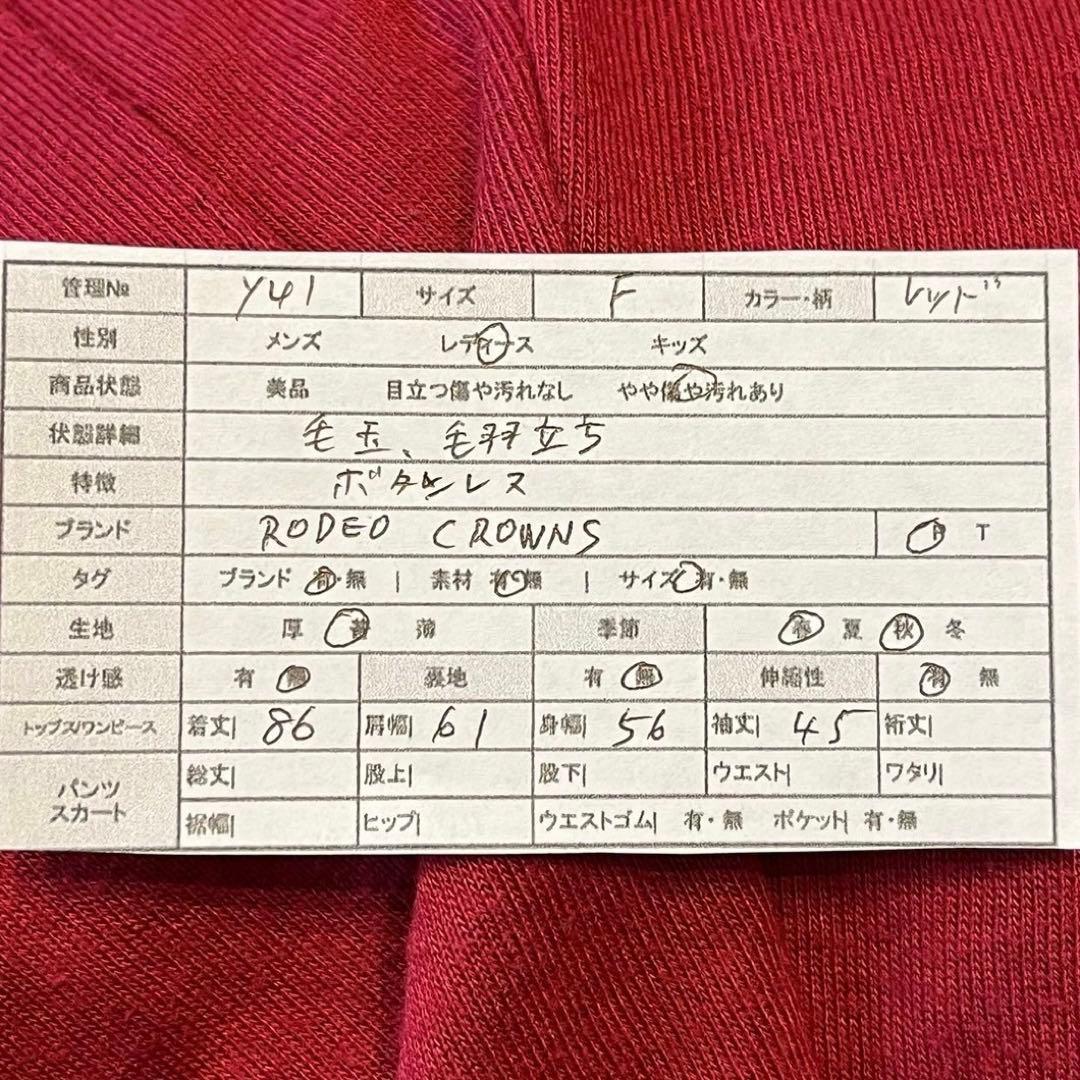 管理№ Y41 サイズ F カラー・柄 レッド
性別 メンズ レディース キッズ
商品状態 美品 目立つ傷や汚れなし やや傷や汚れあり
状態詳細 毛玉、毛羽立ち
特徴 ボタンレス
ブランド RODEO CROWNS T
タグ ブランド 有・無 | 素材 有・無 | サイズ 有・無
生地 厚 普 薄 季節 春 夏 秋 冬
透け感 有 無 裏地 有 無 伸縮性 有 無
トップス/ワンピース 着丈| 86 肩幅| 61 身幅| 56 袖丈| 45 裄丈|
パンツ スカート 総丈| 股上| 股下| ウエスト| ワタリ|
裾幅| ヒップ| ウエストゴム| 有・無 ポケット| 有・無